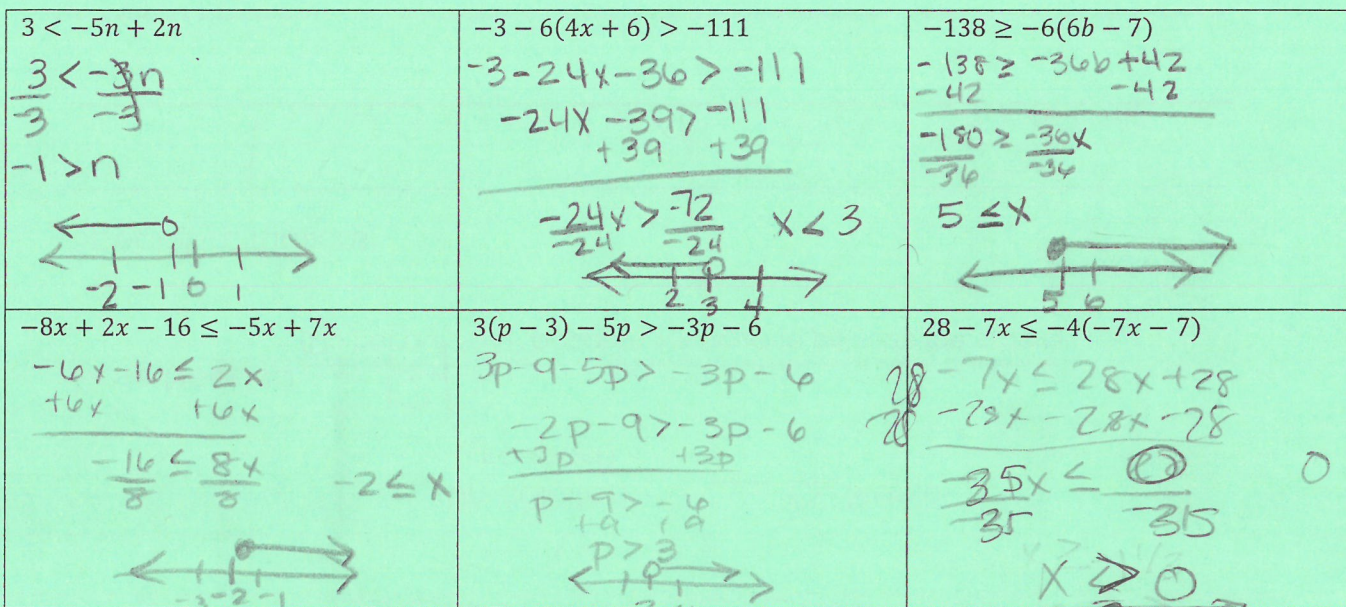 3 < −5n + 2n
3 < -3n
-3 -3
-1 > n
-2 -1 0 1
−3 − 6(4x + 6) > −111
-3-24x-36 > -111
-24x -39 > -111
+39 +39
-24x > -72
-24 -24
x < 3
2 3 4
−138 ≥ −6(6b − 7)
-138 ≥ -36b + 42
-42 -42
-180 ≥ -36x
-36 -36
5 ≤ x
5 6
−8x + 2x − 16 ≤ −5x + 7x
-6x-16 ≤ 2x
+6x +6x
-16 ≤ 8x
8 8
-2 ≤ x
-3 -2 -1
3(p − 3) − 5p > −3p − 6
3p-9-5p > -3p-6
-2p-9 > -3p-6
+3p +3p
p-9 > -6
+9 +9
p > 3
28 − 7x ≤ −4(−7x − 7)
28 -7x ≤ 28x+28
-28 -28x -28x -28
-35x ≤ 0
-35 -35
0
x ≥ 0